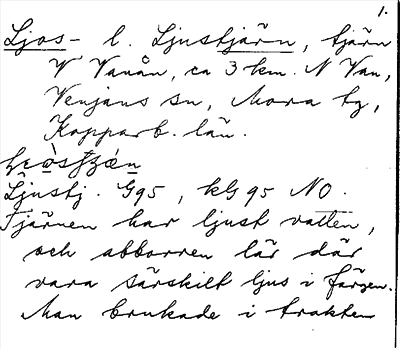 1.
Ljos- l. Ljustjärn, tjärn
V Vanån, ca 3 km. N Van,
Venjans sn, Mora tg,
Kopparb. län.
Ljustj. G95, kG 95 NO.
Tjärnen har ljust vatten,
och abborren lär där
vara särskilt ljus i färgen.
Man brukade i trakten